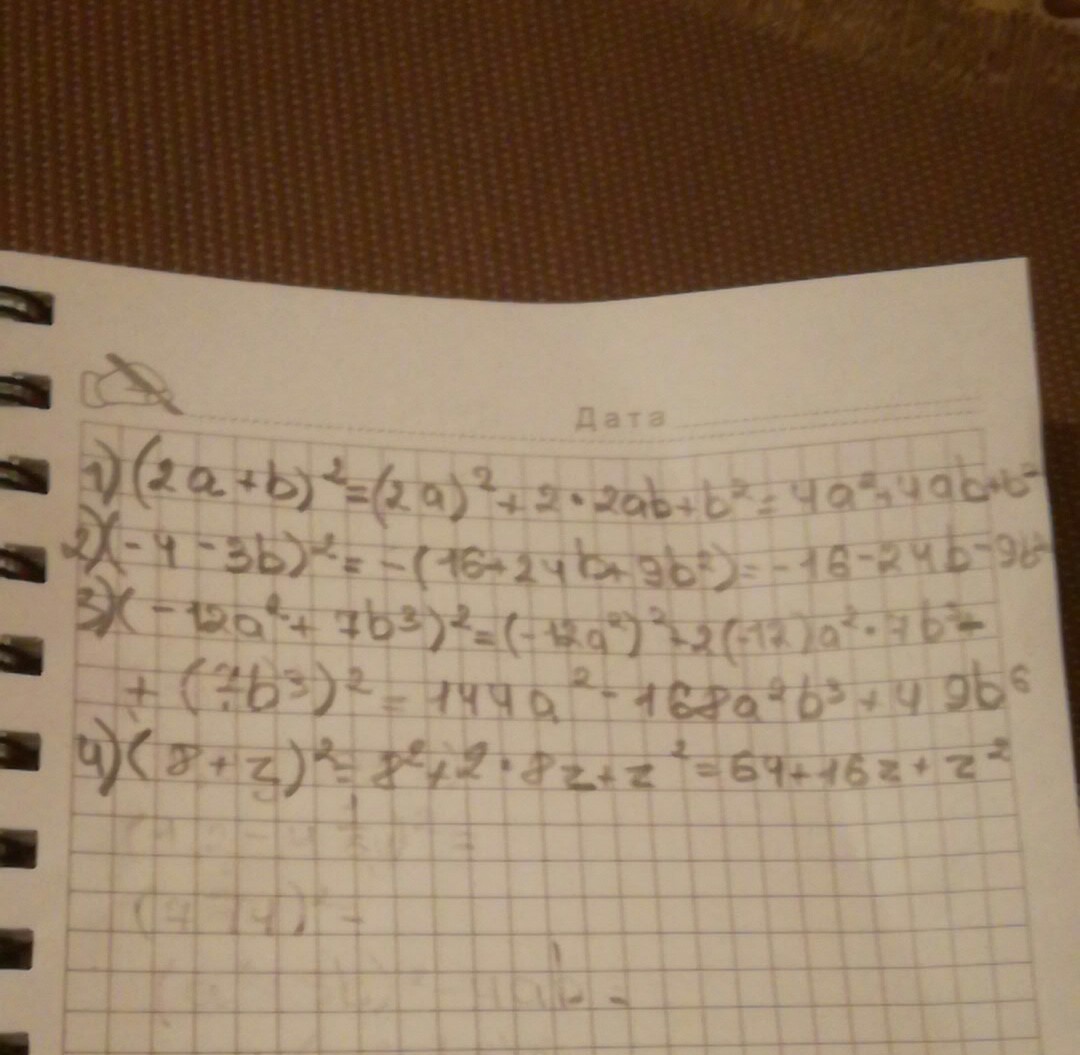 Дата
1) (2a+b)² = (2a)² + 2·2ab+b² = 4a²+4ab+b²
2) (-4-3b)² = -(16+24b+9b²) = -16-24b-9b²
3) (-12a²+7b³)² = (-12a²)²+2(-12)a²·7b³+
+(7b³)² = 144a²-168a²b³+49b⁶
4) (8+z)² = 8²+2·8z+z² = 64+16z+z²